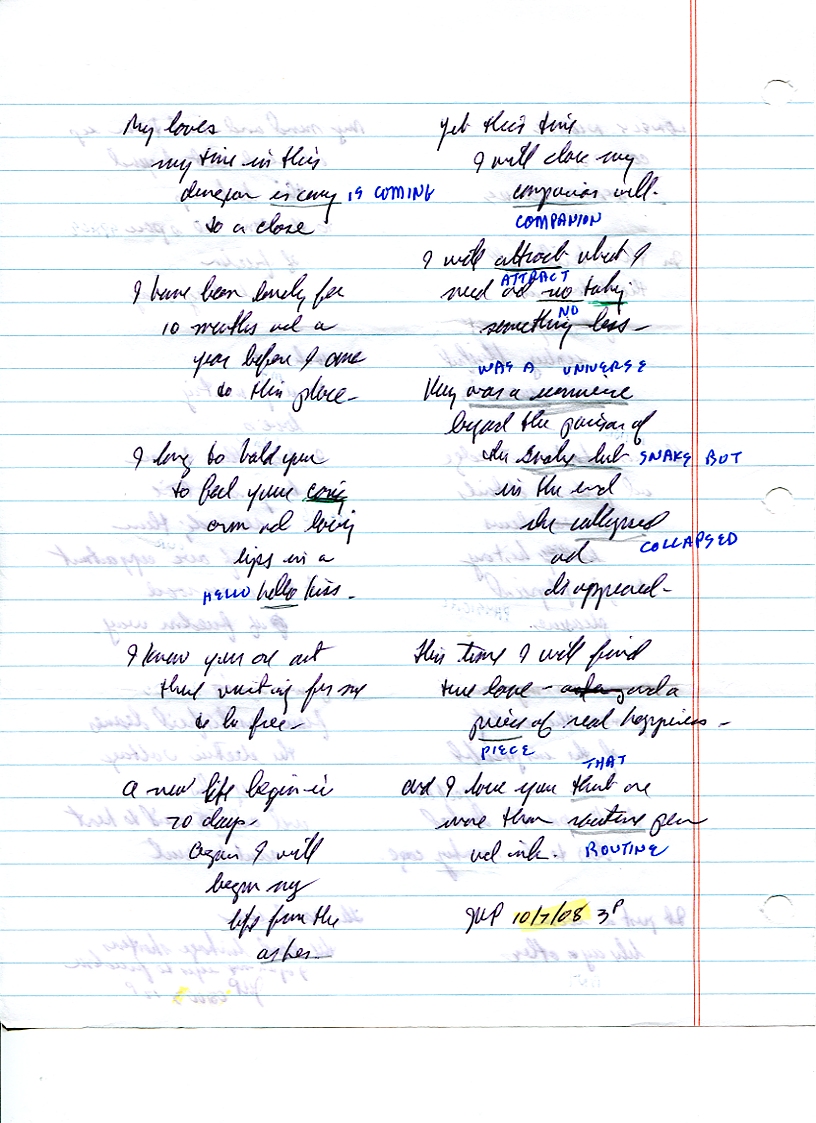 My loves
my time in this
dungeon is comg IS COMING
to a close
I have been lonely for
10 months and a
year before I came
to this place-
I long to hold you
to feel your
arm and loving
lips in a
HELLO hello kiss.
I know you are out
there waiting for me
to be free-
a new life begin in
20 days-
Again I will
begin my
life from the
ashes-
yet this time
I will chose my
companion well.
COMPANION
I will attract what I
ATTRACT
need and no taking
NO
something less-
WAS A UNIVERSE
was a universe
beyond the poison of
the snake but SNAKE BUT
in the end
she collapsed
COLLAPSED
and
disappeared-
this time I will find
true love - and a
piece of real happiness -
PIECE
THAT
and I love you that are
more than routine pen
and ink. ROUTINE
10/7/08 3P